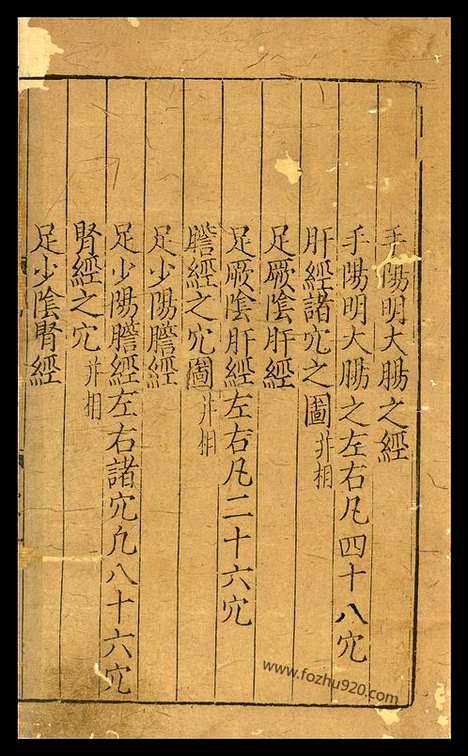 手陽明大腸之經
手陽明大腸之左右凡四十八穴
肝經諸穴之圖并相
足厥陰肝經
足厥陰肝經左右凡二十六穴
膽經之穴圖并相
足少陽膽經
足少陽膽經左右諸穴凡八十六穴
腎經之穴并相
足少陰腎經
www.fozhu920.com